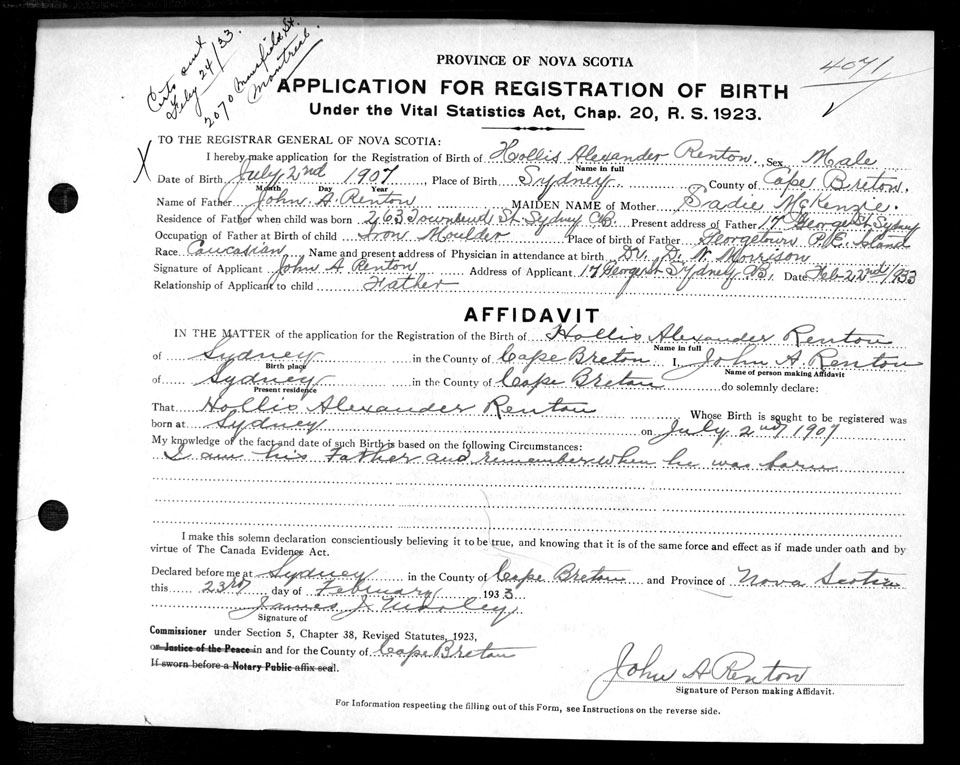 Certs sent
Feby 24/33.
2070 Mansfield St.
Montreal
4071
PROVINCE OF NOVA SCOTIA
APPLICATION FOR REGISTRATION OF BIRTH
Under the Vital Statistics Act, Chap. 20, R. S. 1923.
TO THE REGISTRAR GENERAL OF NOVA SCOTIA:
X
I hereby make application for the Registration of Birth of Hollis Alexander Renton. Sex Male
Name in full
Date of Birth July 2nd 1907, Place of Birth Sydney. County of Cape Breton.
Month Day Year
Name of Father John A. Renton MAIDEN NAME of Mother Sadie McKenzie.
Residence of Father when child was born 263 Townsend St. Sydney C.B. Present address of Father 17 George St Sydney
Occupation of Father at Birth of child Iron Moulder Place of birth of Father Georgetown P.E. Island
Race Caucasian Name and present address of Physician in attendance at birth Dr. D. N. Morrison
Signature of Applicant John A Renton Address of Applicant 17 George St Sydney C.B. Date Feb 22nd/1933
Relationship of Applicant to child Father
AFFIDAVIT
IN THE MATTER of the application for the Registration of the Birth of Hollis Alexander Renton
Name in full
of Sydney in the County of Cape Breton I, John A. Renton
Birth place Name of person making Affidavit
of Sydney in the County of Cape Breton do solemnly declare:
Present residence
That Hollis Alexander Renton Whose Birth is sought to be registered was
born at Sydney on July 2nd 1907
My knowledge of the fact and date of such Birth is based on the following Circumstances:
I am his Father and remember when he was born
I make this solemn declaration conscientiously believing it to be true, and knowing that it is of the same force and effect as if made under oath and by
virtue of The Canada Evidence Act.
Declared before me at Sydney in the County of Cape Breton and Province of Nova Scotia
this 23rd day of February 1933
James J
Signature of
Commissioner under Section 5, Chapter 38, Revised Statutes, 1923,
or Justice of the Peace in and for the County of Cape Breton
If sworn before a Notary Public affix seal.
John A Renton
Signature of Person making Affidavit.
For Information respecting the filling out of this Form, see Instructions on the reverse side.